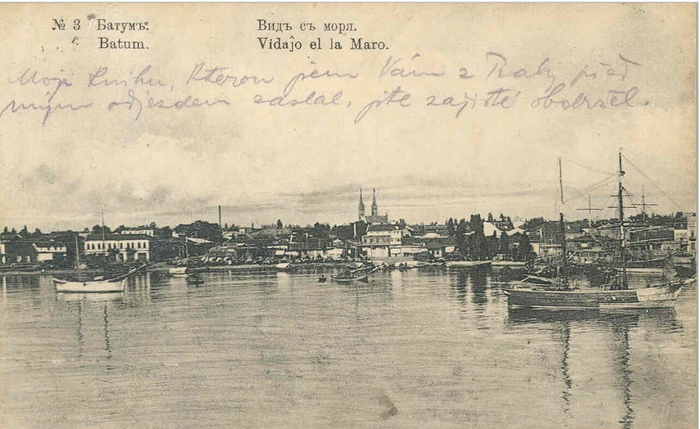 № 3 Батумъ. Видъ съ моря.
Batum. Vidajo el la Maro.
Moji knihu, kterou jsem Vám z Prahy před
mým odjezdem zaslal, jste zajisté obdržel.